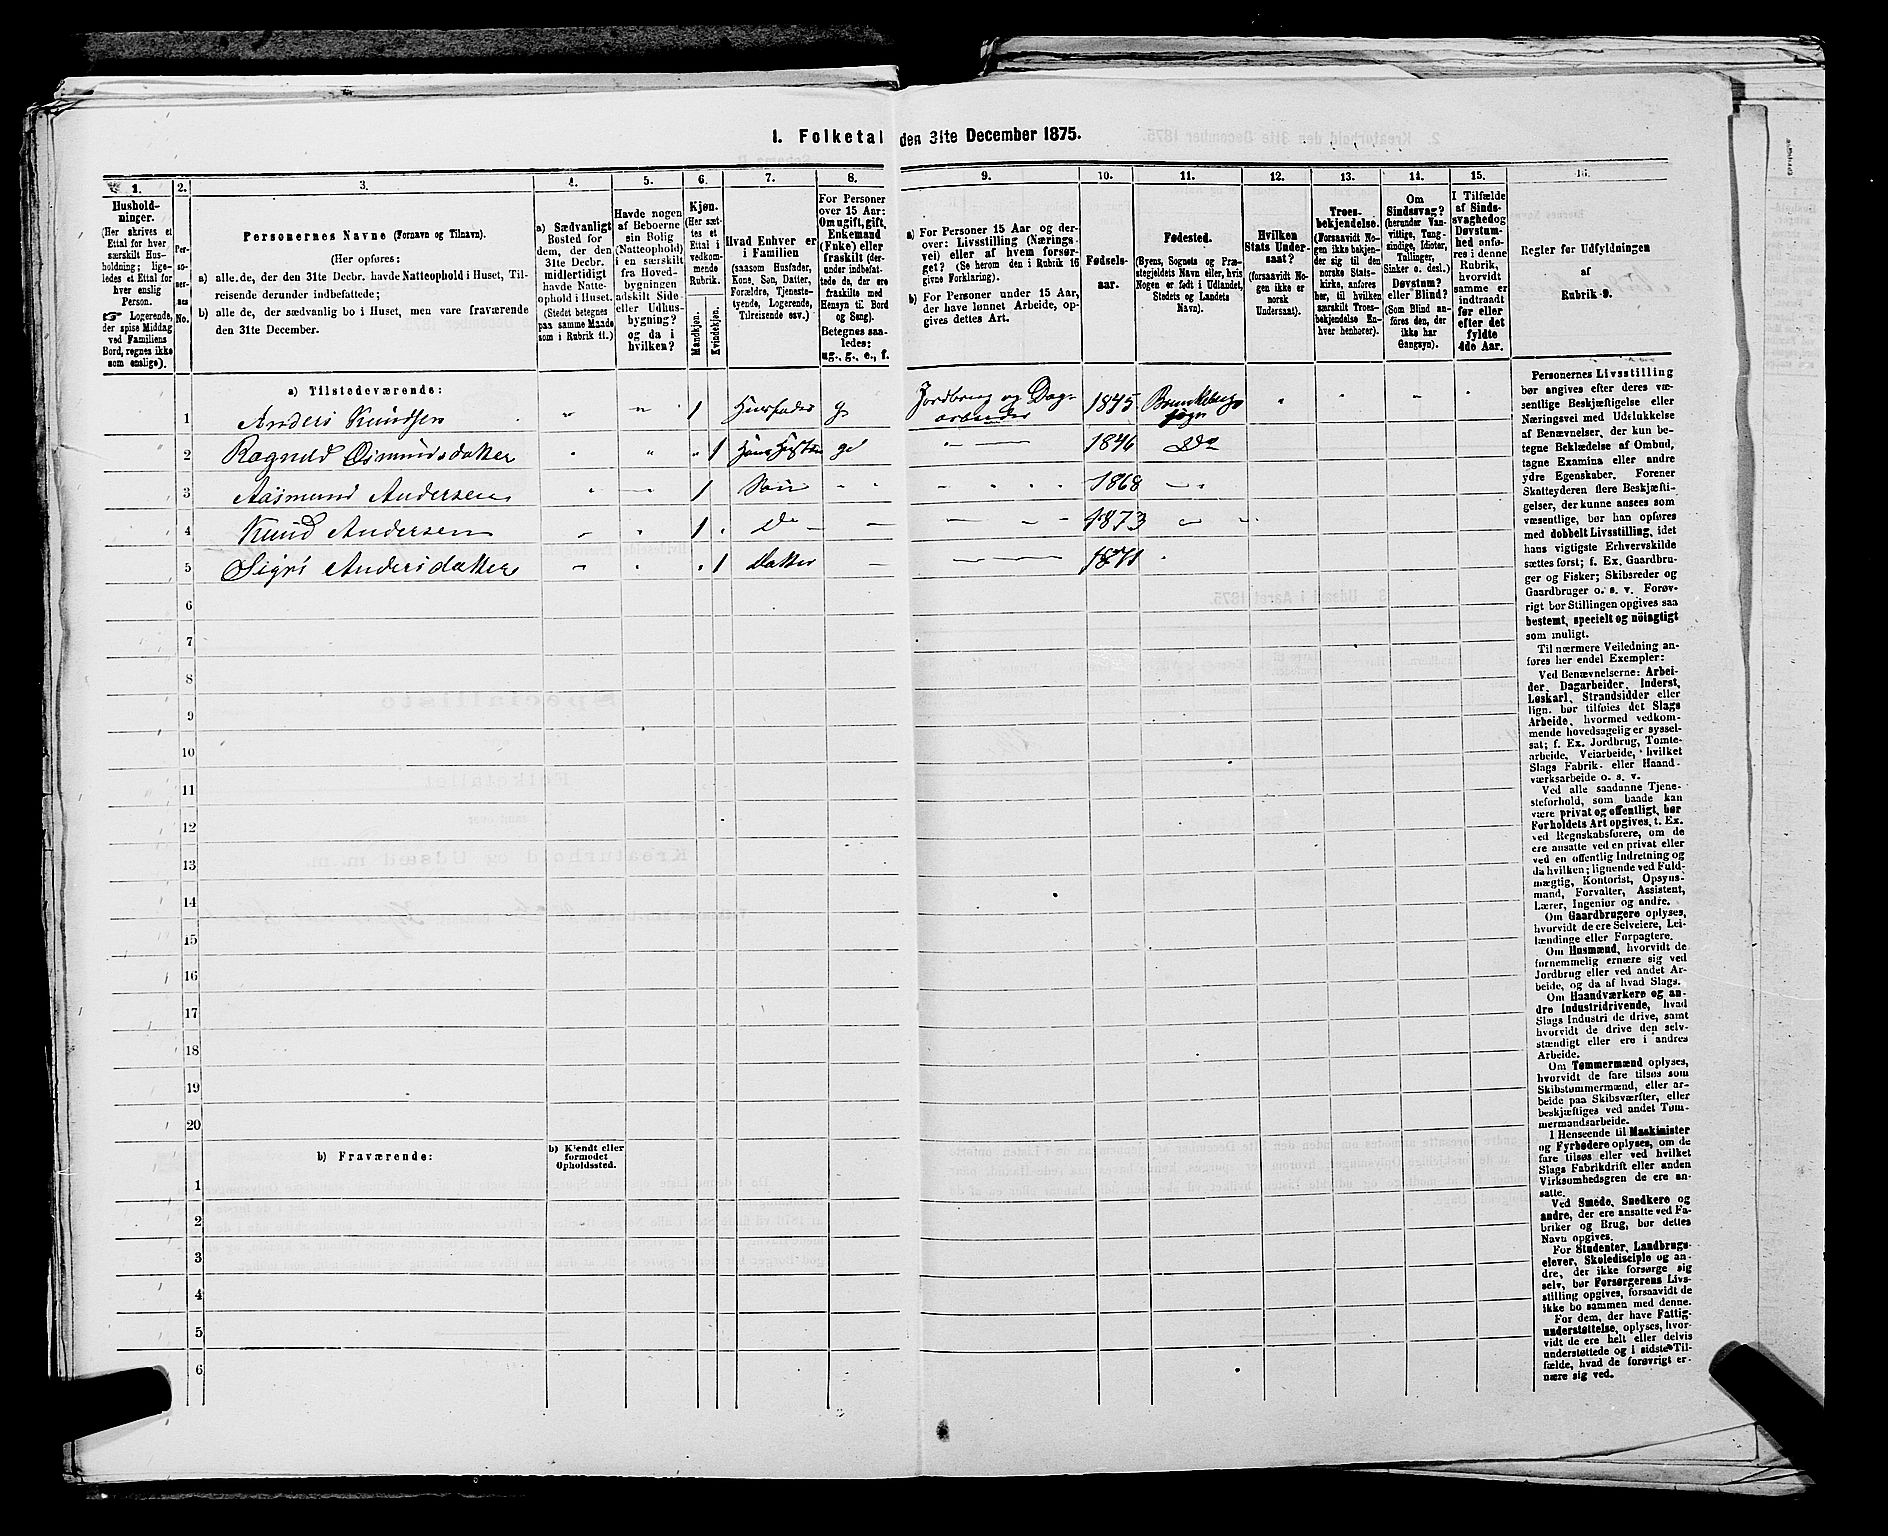 1. Folketal den 31te December 1875.
1.
Hushold-
ninger.
(Her skrives et
Ettal for hver
særskilt Hus-
holdning; lige-
ledes et Ettal for
hver enslig
Person.
Logerende,
der spise Middag
ved Familiens
Bord, regnes ikke
som enslige).
2.
Per-
so-
ner-
nes
No.
3.
Personernes Navne (Fornavn og Tilnavn).
(Her opføres:
a) alle de, der den 31te Decbr. havde Natteophold i Huset, Til-
reisende derunder indbefattede;
b) alle de, der sædvanlig bo i Huset, men vare fraværende
den 31te December.
4.
a) Sædvanligt
Bosted for
dem, der den
31te Decbr.
midlertidigt
havde Natte-
ophold i Huset.
(Stedet betegnes
paa samme Maade
som i Rubrik 11.)
5.
Havde nogen
af Beboerne
sin Bolig
(Natteophold)
i en særskilt
fra Hoved-
bygningen
adskilt Side-
eller Udhus-
bygning?
og da i
hvilken?
6.
Kjøn.
(Her sæt-
tes et
Ettal i
vedkom-
mende
Rubrik.
Mandkjøn.
Kvindekjøn.
7.
Hvad Enhver er
i Familien
(saasom Husfader,
Kone, Søn, Datter,
Forældre, Tjeneste-
tyende, Logerende,
Tilreisende osv.)
8.
For Personer
over 15 Aar:
Om ugift, gift,
Enkemand
(Enke) eller
fraskilt (der-
under indbefat-
tede de, der ere
fraskilte med
Hensyn til Bord
og Seng).
Betegnes saa-
ledes:
ug., g., e., f.
9.
a) For Personer 15 Aar og der-
over: Livsstilling (Nærings-
vei) eller af hvem forsør-
get? (Se herom den i Rubrik 16
givne Forklaring).
b) For Personer under 15 Aar,
der have lønnet Arbeide, op-
gives dettes Art.
10.
Fødsels-
aar.
11.
Fødested.
(Byens, Sognets og Præ-
stegjeldets Navn eller, hvis
Nogen er født i Udlandet,
Stedets og Landets
Navn).
12.
Hvilken
Stats Under-
saat?
(forsaavidt No-
gen ikke er
norsk
Undersaat).
13.
Troes-
bekjendelse.
(Forsaavidt No-
gen ikke bekjen-
der sig til den
norske Stats-
kirke, anføres
her, til hvilken
særskilt Troes-
bekjendelse En-
hver henhører).
14.
Om
Sindssvag?
(herunder Van-
vittige, Tung-
sindige, Idioter,
Tullinger,
Sinker o. desl.)
Døvstum?
eller Blind?
(Som Blind an-
føres den, der
ikke har
Gangsyn).
15.
I Tilfælde
af Sinds-
svaghed og
Døvstum-
hed anfø-
res i denne
Rubrik,
hvorvidt
samme er
indtraadt
før eller
efter det
fyldte
4de Aar.
16.
Regler for Udfyldningen
af
Rubrik 9.
a) Tilstedeværende:
1 Anders Knudsen " " 1 Huusfader g Jordbrug og Dag-
arbeider 1845 Brunkebergs
Sogn
2 Ragnild Osmundsdatter " " " 1 g " — 1846 Do
3 Aasmund Andersen " — 1 Søn " " 1868 " "
4 Knud Andersen " " 1 " Do — — 1873 " "
5 Sigri Andersdatter " " " 1 Datter — 1871 "
6
7
8
9
10
11
12
13
14
15
16
17
18
19
20
b) Fraværende:
b) Kjendt eller
formodet
Opholdssted.
1
2
3
4
5
6
Personernes Livsstilling
bør angives efter deres væ-
sentlige Beskjæftigelse eller
Næringsvei med Udelukkelse
af Benævnelser, der kun be-
tegne Beklædelse af Ombud,
tagne Examina eller andre
ydre Egenskaber. Forener
Skatteyderen flere Beskjæfti-
gelser, der kunne ansees som
væsentlige, bør han opføres
med dobbelt Livsstilling, idet
hans vigtigste Erhvervskilde
sættes først; f. Ex. Gaardbru-
ger og Fisker; Skibsreder og
Gaardbruger o. s. v. Forøv-
rigt bør Stillingen opgives saa
bestemt, specielt og nöiagtigt
som muligt.
Til nærmere Veiledning an-
føres her endel Exempler:
Ved Benævnelserne: Arbei-
der, Dagarbeider, Inderst,
Løskarl, Strandsidder eller
lign. bør tilføies det Slags
Arbeide, hvormed vedkom-
mende hovedsagelig er syssel-
sat; f. Ex. Jordbrug, Tomte-
arbeide, Veiarbeide, hvilket
Slags Fabrik- eller Haand-
værksarbeide o. s. v.
Ved alle saadanne Tjene-
steforhold, som baade kan
være privat og offentligt, bør
Forholdets Art opgives, t. Ex.
ved Regnskabsførere, om de
ere ansatte ved en privat eller
ved en offentlig Indretning og
da hvilken; lignende ved Fuld-
mægtig, Kontorist, Opsyns-
mand, Forvalter, Assistent,
Lærer, Ingeniør og andre.
Om Gaardbrugere oplyses,
hvorvidt de ere Selveiere, Lei-
lændinge eller Forpagtere.
Om Husmænd, hvorvidt de
fornemmelig ernære sig ved
Jordbrug eller ved andet Ar-
beide, og da af hvad Slags.
Om Haandværkere og an-
dre Industridrivende, hvad
Slags Industri de drive, samt
hvorvidt de drive den selv-
stændigt eller ere i andres
Arbeide.
Om Tømmermænd oplyses,
hvorvidt de fare tilsøs som
Skibstømmermænd, eller ar-
beide paa Skibsværfter, eller
beskjæftiges ved andet Tøm-
mermandsarbeide.
I Henseende til Maskinister
og Fyrbødere oplyses, om de
fare tilsøs eller ved hvilket
Slags Fabrikdrift eller anden
Virksomhedsgren de ere an-
satte.
Ved Smede, Snedkere og
andre, der ere ansatte ved Fa-
briker og Brug, bør dettes
Navn opgives.
For Studenter, Landbrugs-
elever, Skoledisciple og an-
dre, der ikke forsørge sig
selv, bør Forsørgerens Livs-
stilling opgives, forsaavidt de
ikke bo sammen med denne.
For dem, der have Fattig-
understøttelse, oplyses, hvor-
vidt de ere helt eller delvis
understøttede og i sidste Til-
fælde, hvad de forøvrigt er-
nære sig ved.